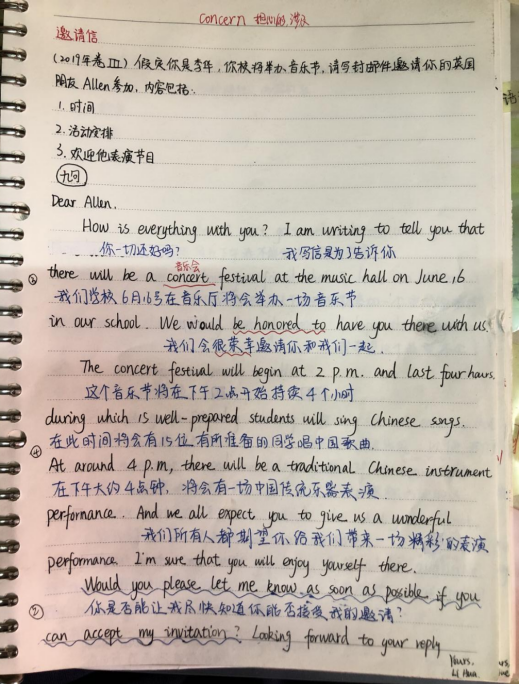 concern 担心的,涉及
邀请信
(2019年卷III) 假定你是李华,你校将举办音乐节,请写封邮件邀请你的英国
朋友Allen参加,内容包括:
1. 时间
2. 活动安排
3. 欢迎他表演节目
九词
Dear Allen,
How is everything with you? I am writing to tell you that
你一切还好吗? 我写信是为了告诉你
音乐会
③ there will be a concert festival at the music hall on June 16
我们学校6月16号在音乐厅将会举办一场音乐节
in our school. We would be honored to have you there with us.
我们会很荣幸邀请你和我们一起.
The concert festival will begin at 2 p.m. and last four hours.
这个音乐节将在下午2点开始持续4个小时
during which 15 well-prepared students will sing Chinese songs.
在此时间将会有15位有所准备的同学唱中国歌曲.
④
At around 4 p.m, there will be a traditional Chinese instrument
在下午大约4点钟, 将会有一场中国传统乐器表演
perfornance. And we all expect you to give us a wonderful
我们所有人都期望你给我们带来一场精彩的表演
performance. I'm sure that you will enjoy yourself there.
Would you please let me know as soon as possible if you
② 你是否能让我尽快知道你能否接受我的邀请?
can accept my invitation? Looking forward to your reply
Yours,
Li Hua.